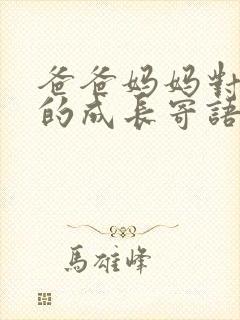 爸爸妈妈對
的成長寄語
馬雄峰